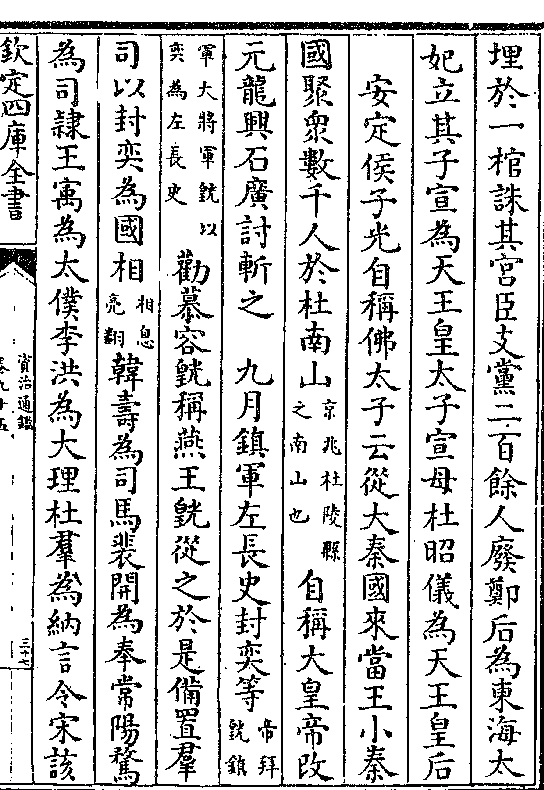 埋於一棺誅其宫臣支黨二百餘人廢鄭后為東海太
妃立其子宣為天王皇太子宣母杜昭儀為天王皇后
安定侯子光自稱佛太子云從大秦國來當王小秦
國聚衆數千人於杜南山京兆杜陵縣之南山也自稱大皇帝改
元龍興石廣討斬之　九月鎮軍左長史封奕等帝拜皝鎮
軍大將軍皝以奕為左長史勸慕容皝稱燕王皝從之於是備置羣
司以封奕為國相相息亮翻韓壽為司馬裴開為奉常陽騖
為司隸王寓為太僕李洪為大理杜羣為納言令宋該
欽定四庫全書
資治通鑑
卷九十五
三十七